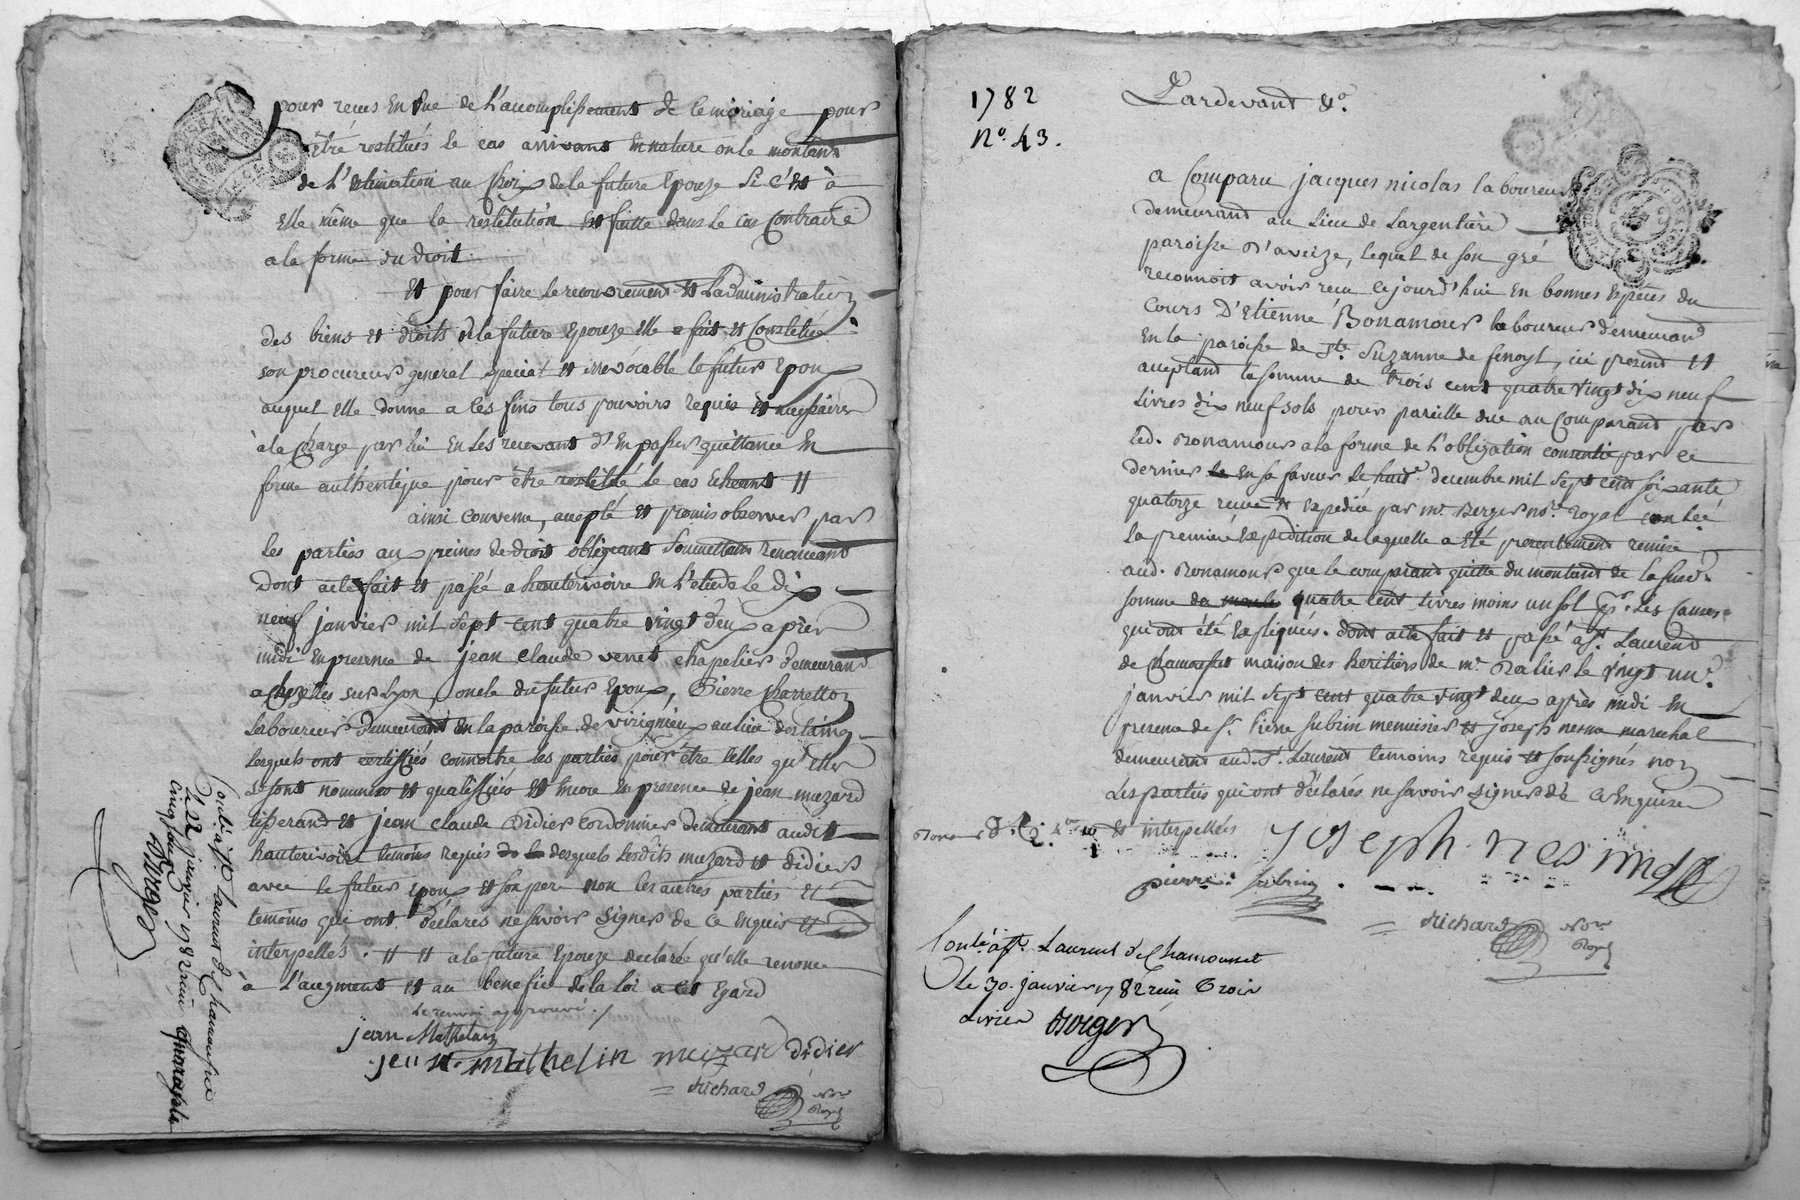 pour reçus en vue de l'accomplissement de ce mariage pour
être restitués le cas arrivant en nature ou le montant
de l'estimation au choix de la future epouze si c'est à
elle même que la restitution est faitte dans le cas contraire
a la forme du droit
et pour faire le recouvrement et l'administration
des biens et droits de la future epouze elle a fait et constitué
son procureur general special et irrevocable le futur epoux
auquel elle donne a ces fins tous pouvoirs requis et necessaires
à la charge par lui en les recevant d'en passer quittance en
forme authentique pour être restitué le cas echeant //
ainsi convenu, accepté et promis observer par
les parties aux peines de droit obligeant soumettant renonceant
dont acte fait et passé a hauterivoire en l'etude le dix
neuf janvier mil sept cent quatre vingt deux après
midi en presence de jean claude venet chapelier demeurant
a chazelles sur Lyon, oncle du futur epoux, Pierre
laboureur demeurant en la paroisse de virignieu au lieu
lesquels ont certiffiés connoitre les parties pour être telles qu'elles
se sont nommées et qualiffiées et encore en presence de jean muzard
tisserand et jean claude Didier cordonnier demeurants audit
hauterivoire temoins requis desquels lesdits muzard et didier
avec le futur epoux et son pere non les autres parties et
temoins qui ont déclarés ne savoir signer de ce enquis et
interpellés. // // a la future epouze declarée qu'elle renonce
à l'augment et au benefice de la loi a cet egard
le renvoi approuvé ./
jean Mathelin
jean mathelin muzard didier
= Richard Nore Royal
Controlé à st. Laurent de Chamousset
Le 22 janvier 1782 reçu quarante
cinq sols
Berger
1782
No. 43.
Pardevant &c.
a Comparu jacques nicolas laboureur
demeurant au lieu de Largentière
paroisse d'aveize, lequel de son gré
reconnoit avoir reçu cejourd'hui en bonnes espèces du
cours d'Etienne Bonamour laboureur demeurant
en la paroisse de ste. Suzanne de finoyl, ici present et
acceptant la somme de trois cent quatre vingt dix neuf
livres dix neuf sols pour pareille due au Comparant par
led. Bonamour a la forme de l'obligation consentie par ce
dernier en sa faveur le huit decembre mil sept cent soixante
quatorze recue et expediée par me. Berger nore. royal
la première expedition de laquelle a été presentement remise
aud. Bonamour que le comparant quitte du montant de la sued.
somme quatre cent livres moins un sol pr. les causes
qui ont été expliqués. dont acte fait et passé à st. Laurent
de Chamousset maison des heritiers de me. le vingt un
janvier mil sept cent quatre vingt deux après midi en
presence de sr. Pierre subrin menuisier et joseph nesme marechal
demeurant aud. st. Laurent temoins requis et soussignés non
les parties qui ont déclarés ne savoir signer de ce enquises
et interpellés
joseph nesme
pierre subrin
= Richard Nore Royal
Controlé à st. Laurent de Chamousset
le 30. janvier 1782 reçu trois
livres Berger